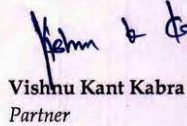 Vishnu Kant Kabra
Partner